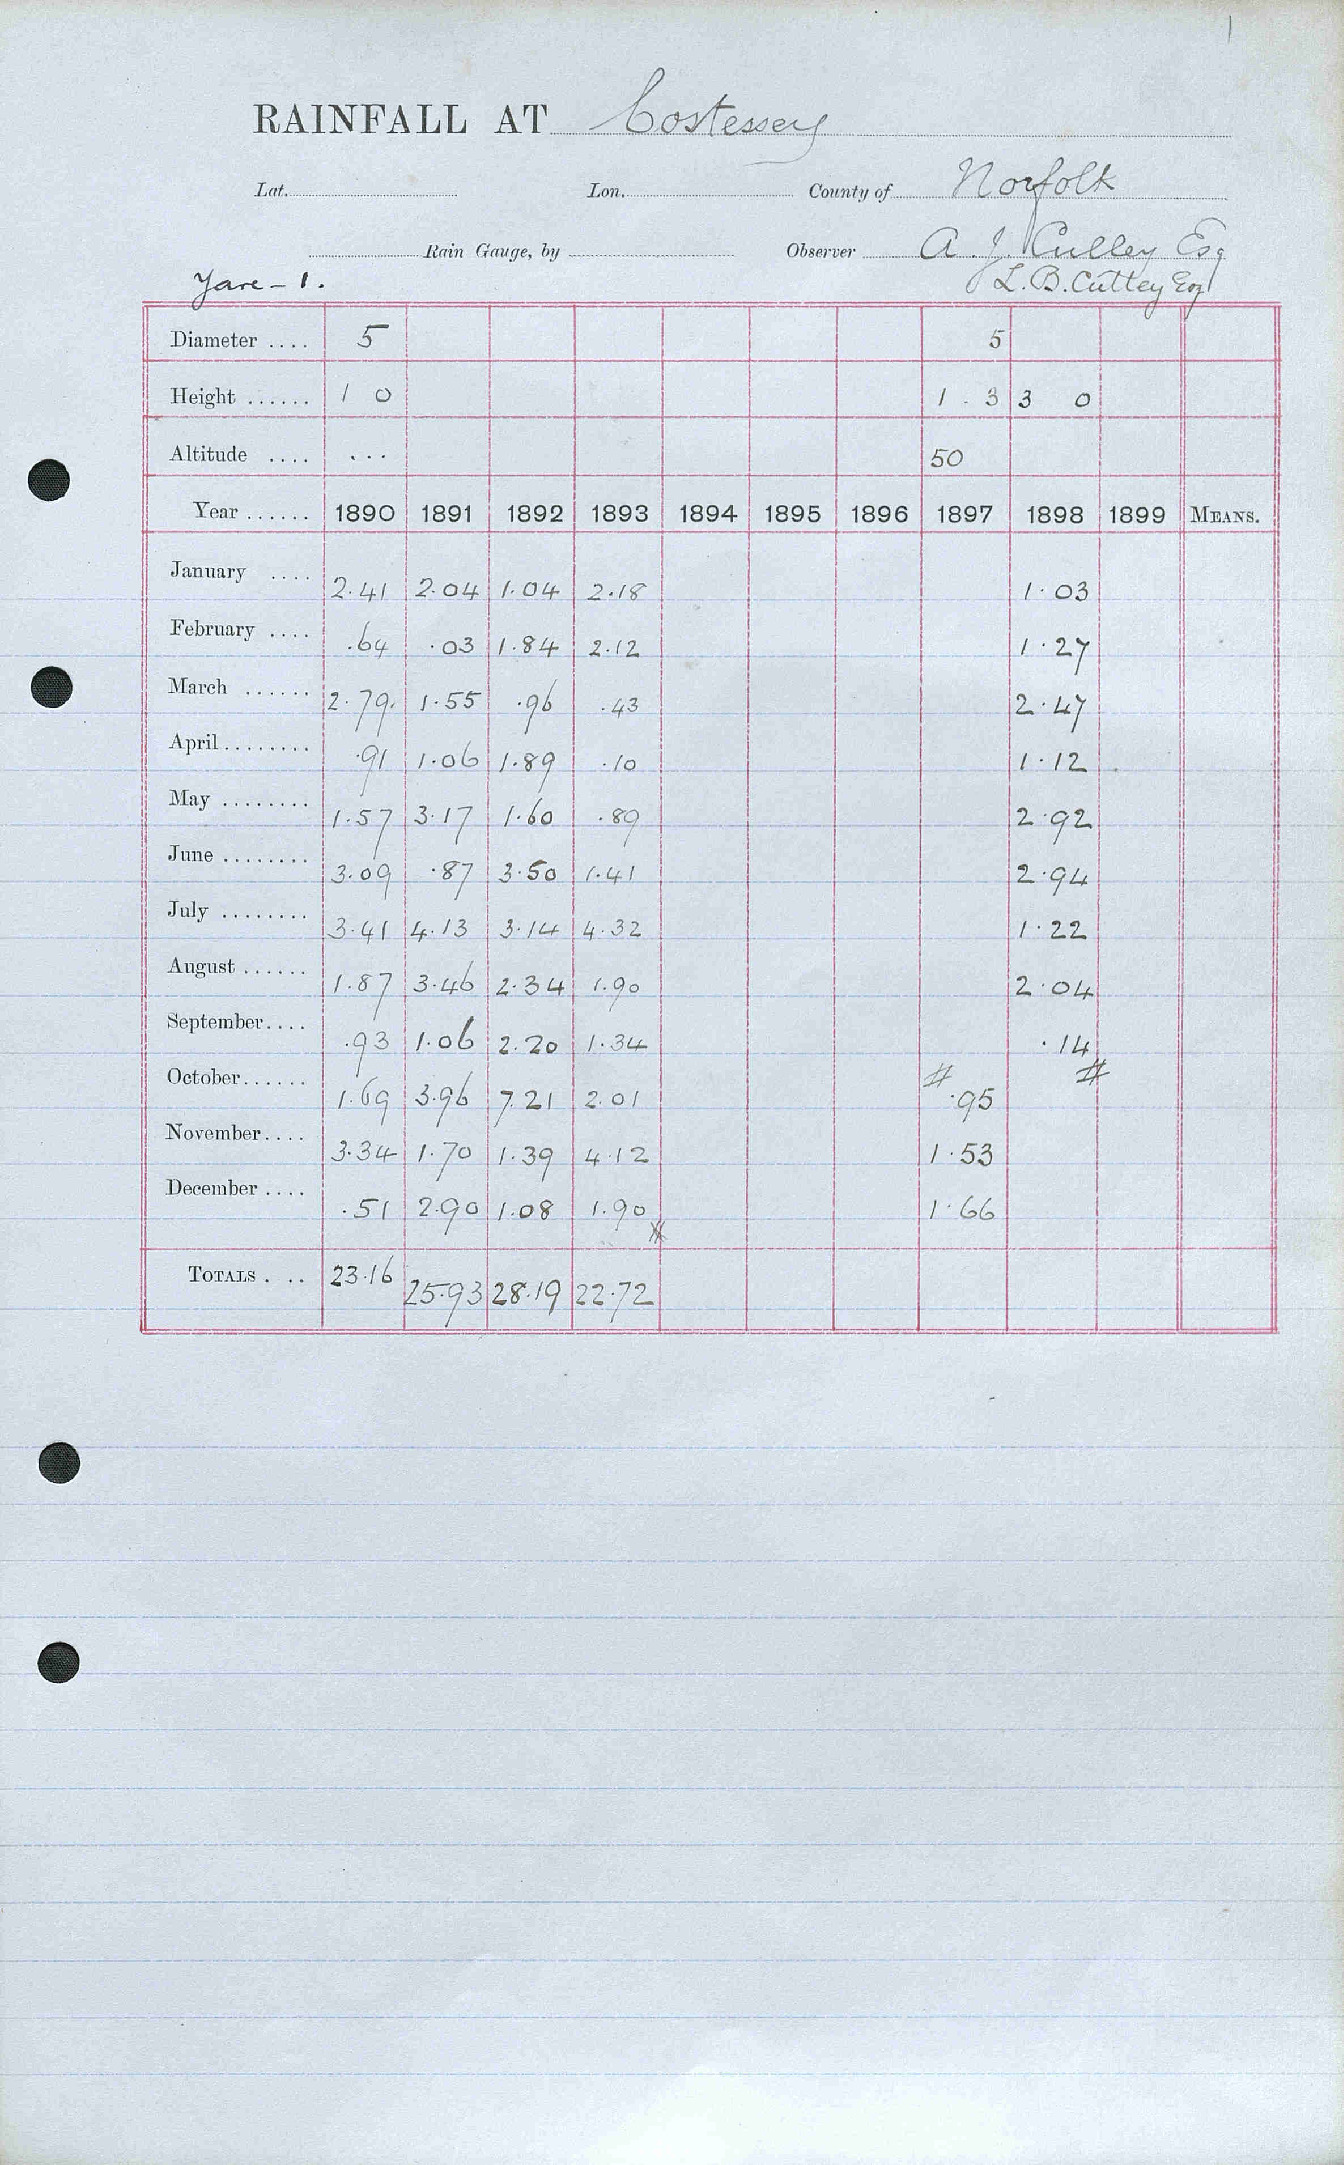 1
RAINFALL AT Costessey
Lat. Lon. County of Norfolk
Rain Gauge, by Observer A. J. Culley Esq
Yare - 1. L. B. Cutley Esq
Diameter .... 5 5
Height ...... 1 0 1 . 3 3 0
Altitude .... ... 50
Year ...... 1890 1891 1892 1893 1894 1895 1896 1897 1898 1899 MEANS.
January .... 2.41 2.04 1.04 2.18 1.03
February .... .64 .03 1.84 2.12 1.27
March ...... 2.79. 1.55 .96 .43 2.47
April ........ .91 1.06 1.89 .10 1.12
May ........ 1.57 3.17 1.60 .89 2.92
June ........ 3.09 .87 3.50 1.41 2.94
July ........ 3.41 4.13 3.14 4.32 1.22
August ...... 1.87 3.46 2.34 1.90 2.04
September.... .93 1.06 2.20 1.34 .14
October...... 1.69 3.96 7.21 2.01 # .95 #
November.... 3.34 1.70 1.39 4.12 1.53
December .... .51 2.90 1.08 1.90 # 1.66
TOTALS . .. 23.16 25.93 28.19 22.72